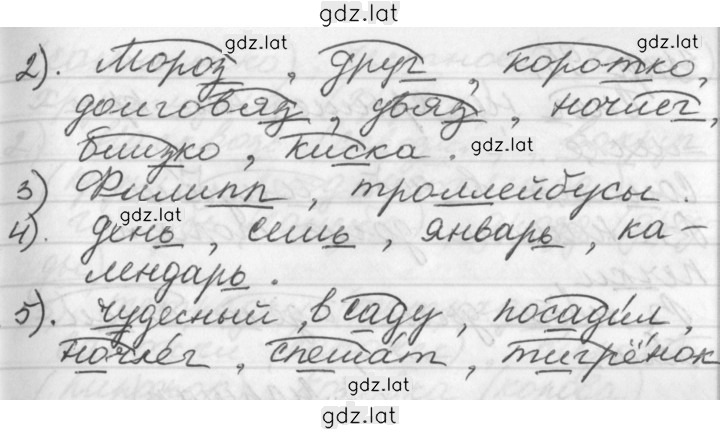 gdz.lat
2). Мороз, друг, коротко,
gdz.lat gdz.lat
долговяз, увяз, ночлег,
близко, киска.
gdz.lat
3) Филипп, троллейбусы.
gdz.lat
4). день, семь, январь, ка-
лендарь.
5). чудесный, в саду, посади́л,
ночле́г, спеша́т, тигрёнок
gdz.lat
gdz.lat